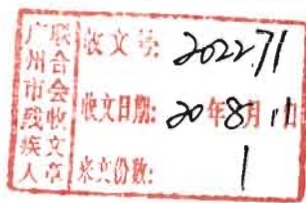 广州市残疾人联合会收文章
收文号: 202271
收文日期: 20年8月11日
来文份数: 1